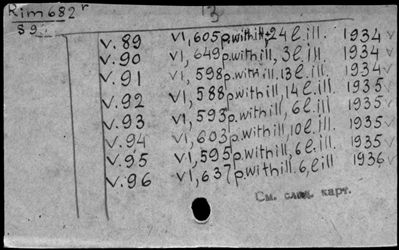 Rim 682 r
13
89
v.89 VI, 605 p. with ill., 24 l. ill. 1934 v
v.90 VI, 649 p. with ill., 3 l. ill. 1934 v
v.91 VI, 598 p. with ill. 13 l. ill. 1934 v
v.92 VI, 588 p. with ill., 14 l. ill. 1935 v
v.93 VI, 593 p. with ill., 6 l. ill. 1935 v
v.94 VI, 603 p. with ill., 10 l. ill. 1935 v
v.95 VI, 595 p. with ill., 6 l. ill. 1935 v
v.96 VI, 637 p. with ill. 6 l. ill 1936 v
См. след. карт.